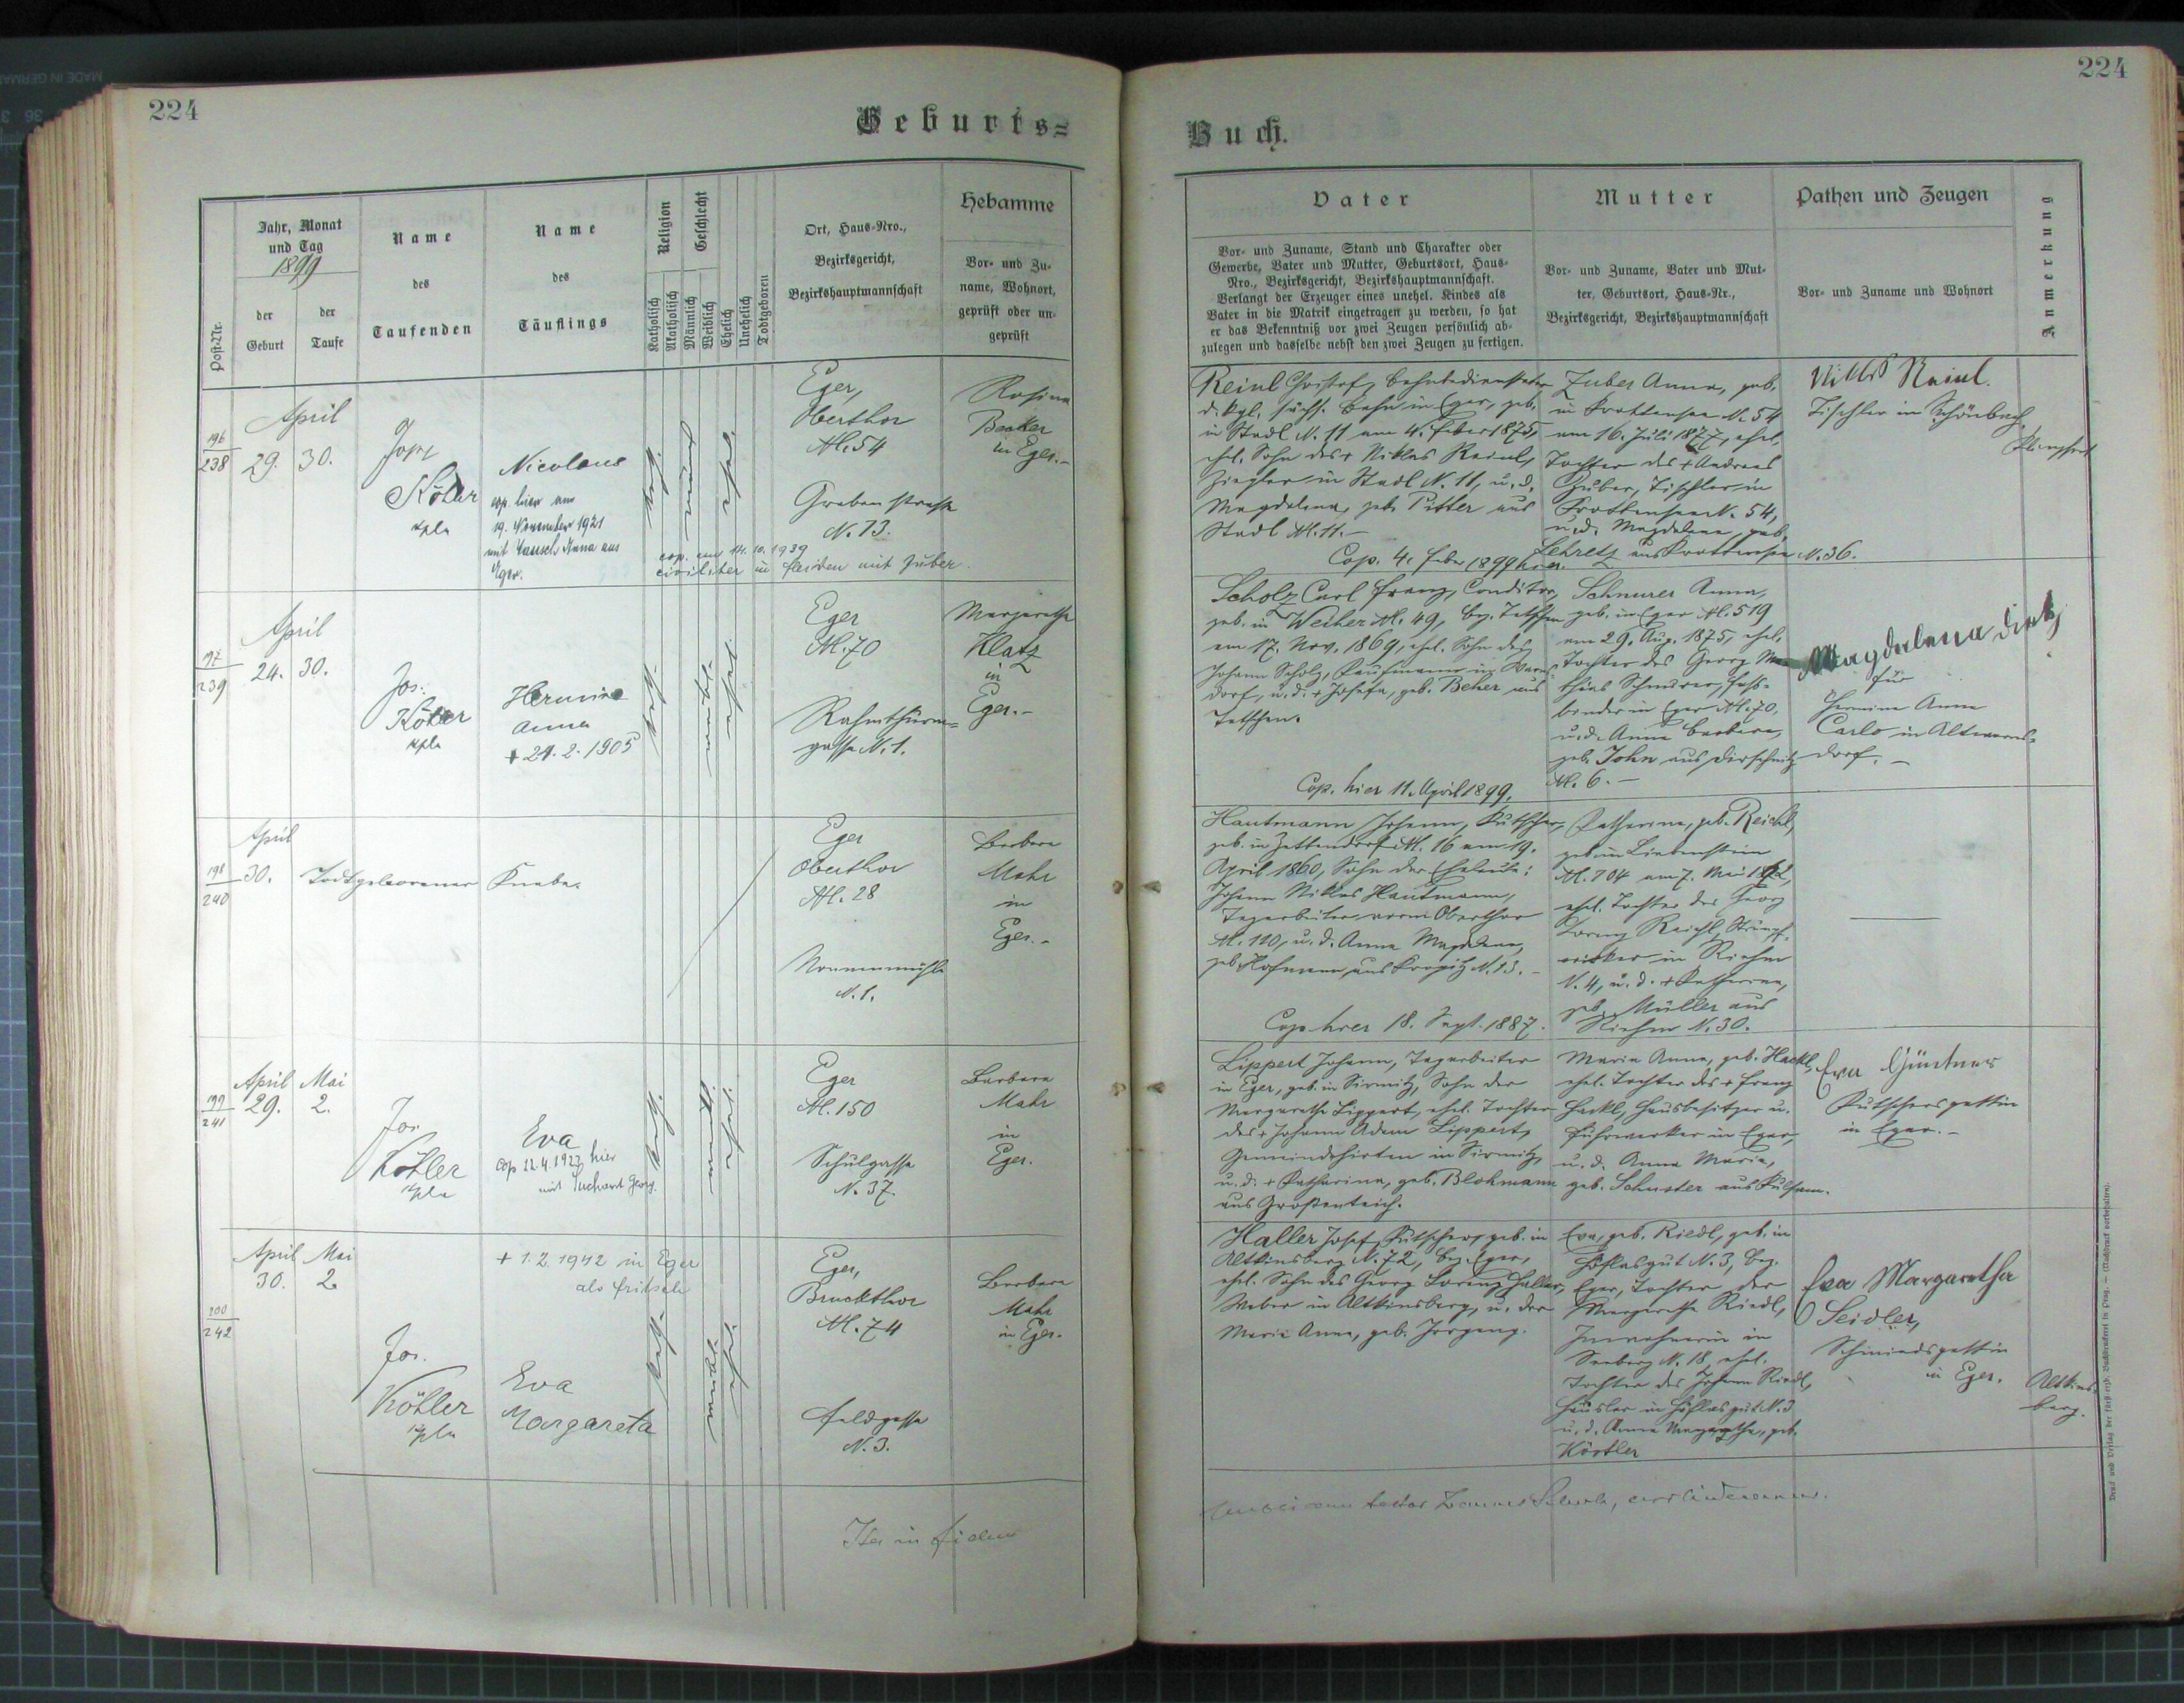 224
Geburts=
Jahr, Monat
und Tag
1899
Post-Nr.
der
Geburt
der
Taufe
Name
des
Taufenden
Name
des
Täuflings
Religion
Geschlecht
Katholisch
Akatholisch
Männlich
Weiblich
Ehelich
Unehelich
Todtgeboren
Ort, Haus-Nro.,
Bezirksgericht,
Bezirkshauptmannschaft
Hebamme
Vor- und Zu-
name, Wohnort,
geprüft oder un-
geprüft
196
238
April
29. 30.
Köhler
Nicolaus
cop. hier am
19. November 1921
mit Anna aus
Eger.
cop. am 14.10.1939
civiliter in mit Zuber.
Eger,
Oberthor
N. 54
Grabenstrasse
N. 13.
Rosina
Becker
in Eger.-
197
239
April
24. 30.
Jos.
Köhler
Hermine
Anna
+ 21. 2. 1905
Eger
N. 70
Rahmthurm=
gasse N. 1.
Margaretha
Klatz
in
Eger.-
198
240
April
30.
Todtgeborener Knabe.
Eger
Oberthor
N. 28
Nonnenmühle
N. 1.
Barbara
Mahr
in
Eger.-
199
241
April Mai
29. 2.
Jos.
Köhler
Eva
cop 22.4.1923 hier
mit Georg.
Eger
N. 150
Schulgasse
N. 37.
Barbara
Mahr
in
Eger.
200
242
April Mai
30. 2.
+ 1. 2. 1942 in Eger
als Fritsch
Jos.
Köhler
Eva
Margareta
Eger,
Bruckthor
N. 74
Feldgasse
N. 3.
Barbara
Mahr
in Eger.
Ita in fidem
224
Buch.
Vater
Vor- und Zuname, Stand und Charakter oder
Gewerbe, Vater und Mutter, Geburtsort, Haus-
Nro., Bezirksgericht, Bezirkshauptmannschaft.
Verlangt der Erzeuger eines unehel. Kindes als
Vater in die Matrik eingetragen zu werden, so hat
er das Bekenntniß vor zwei Zeugen persönlich ab-
zulegen und dasselbe nebst den zwei Zeugen zu fertigen.
Mutter
Vor- und Zuname, Vater und Mut-
ter, Geburtsort, Haus-Nr.,
Bezirksgericht, Bezirkshauptmannschaft
Pathen und Zeugen
Vor- und Zuname und Wohnort
Anmerkung
Reinl Christof, Bahnbediensteter
d. kgl. sächs. Bahn in Eger, geb.
in Stadl N. 11 am 4. Feber 1875,
ehel. Sohn des + Niklas Reinl,
Ziegler in Stadl N. 11, u. d.
Magdalena, geb. Pitter aus
Stadl N. 11.-
Cop. 4. Feber 1899 hier.
Zuber Anna, geb.
in Krottensee N. 54
am 16. Juli 1877, ehel.
Tochter des + Andreas
Zuber, Tischler in
Krottensee N. 54,
u. d. Magdalena geb.
Lehretz aus Krottensee N. 36.
Reinl.
Tischler in Schönbach
Scholz Carl Franz, Conditor,
geb. in Weiher N. 49, Bez. Tetschen
am 17. Nov. 1869, ehel. Sohn des
Johann Scholz, Kaufmann in Warns-
dorf, u. d. + Josefa, geb. Beher aus
Tetschen.
Cop. hier 11. April 1899.
Schnurer Anna,
geb. in Eger N. 519
am 29. Aug. 1875, ehel.
Tochter des Georg Ma-
thias Schnurer, Fass-
binder in Eger N. 70,
u. d. Anna Barbara,
geb. John aus Dirschnitz
N. 6.-
Magdalena Dietz
für
Hermine Anna
Carlo in Altwarns-
dorf.-
Hautmann Johann, Kutscher,
geb. in Zettendorf N. 16 am 19.
April 1860, Sohn der Eheleute:
Johann Niklas Hautmann,
Tagarbeiter vorm Oberthor
N. 110, u. d. Anna Magdalena,
geb. Hofmann aus Kropitz N. 13.-
Cop hier 18. Sept. 1887.
Katharina, geb. Reichl,
geb. in Liebenstein
N. 104 am 7. Mai
ehel. Tochter des Georg
Lorenz Reichl, Strumpf-
wirker in Riehm
N. 4, u. d. + Katharina,
geb. Müller aus
Riehm N. 30.
Lippert Johann, Tagarbeiter
in Eger, geb. in Sirmitz, Sohn der
Margaretha Lippert, ehel. Tochter
des + Johann Adam Lippert,
Gemeindehirten in Sirmitz,
u. d. + Katharina, geb. Blohmann
aus Großenteich.
Maria Anna, geb. Hackl,
ehel. Tochter des + Franz
Hackl, Hausbesitzer u.
Fuhrwerker in Eger,
u. d. Anna Maria,
geb. Schuster aus Kulsam.
Eva Güntner
Kutschersgattin
in Eger.-
Haller Josef, Kutscher, geb. in
Altkinsberg N. 72, Bez. Eger,
ehel. Sohn des Georg Lorenz Haller,
Weber in Altkinsberg, u. der
Maria Anna, geb. Jorgang.
Eva, geb. Riedl, geb. in
Höflasgut N. 3, Bez.
Eger, Tochter der
Margaretha Riedl,
Inwohnerin in
Seeberg N. 18, ehel.
Tochter des Johann Riedl,
Häusler in Höflasgut N. 3
u. d. Anna Margaretha, geb.
Köstler
Eva Margaretha
Seidler,
Schmiedsgattin
in Eger.
Altkins-
berg.
Druck und Verlag der fürst-erzb. Buchdruckerei in Prag. — (Nachdruck vorbehalten).